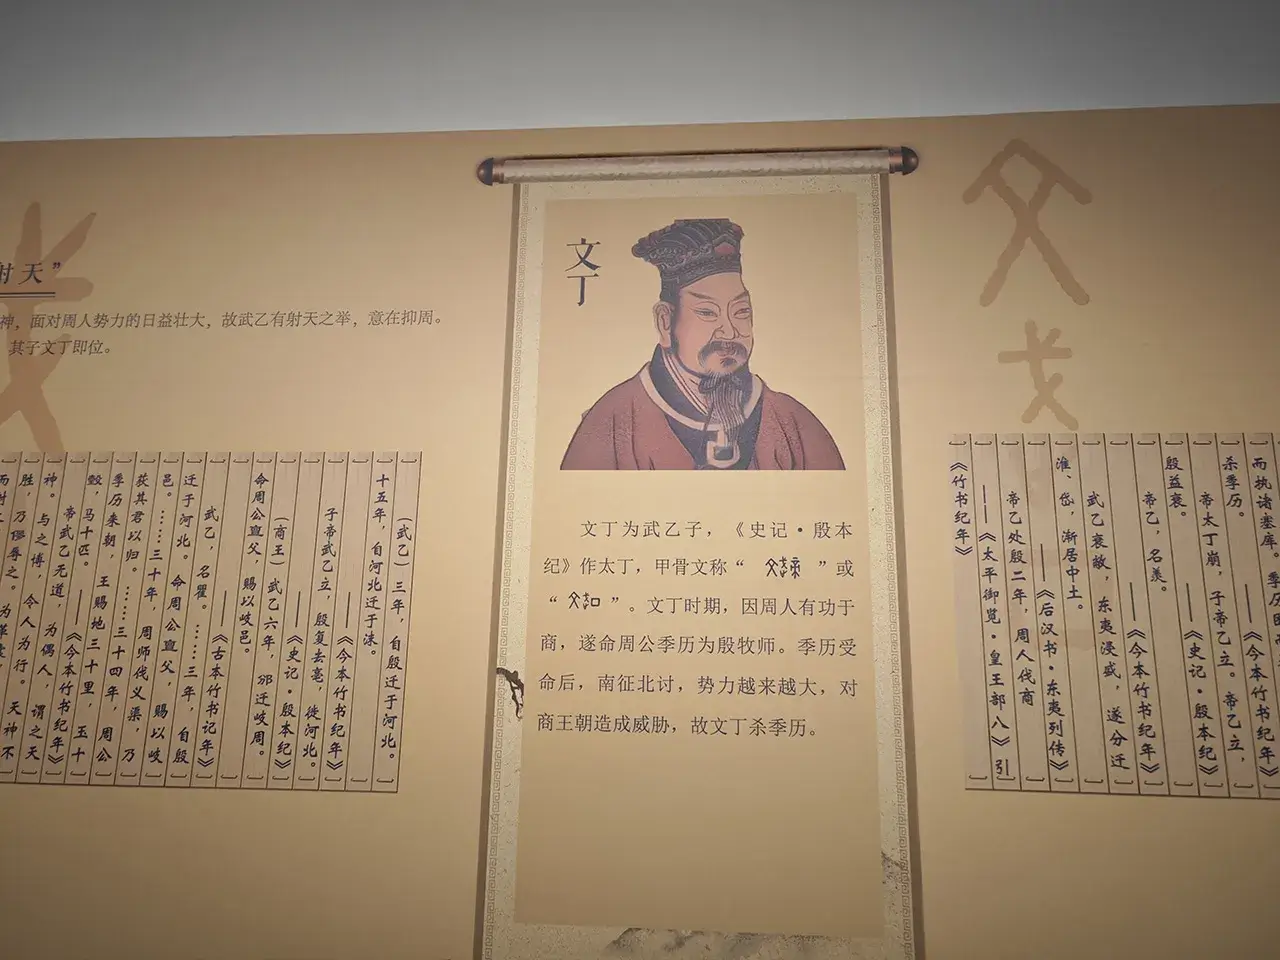 射天”
神，面对周人势力的日益壮大，故武乙有射天之举，意在抑周。
其子文丁即位。
（武乙）三年，自殷迁于河北。
十五年，自河北迁于沬。
——《今本竹书纪年》
子帝武乙立，殷复去亳，徙河北。
——《史记·殷本纪》
（商王）武乙六年，邠迁岐周。
命周公亶父，赐以岐邑。
——《古本竹书记年》
武乙，名瞿。……三年，自殷
迁于河北。命周公亶父，赐以岐
邑。……三十年，周师伐义渠，乃
获其君以归。……三十四年，周公
季历来朝，王赐地三十里，玉十
瑴，马十匹。
——《今本竹书纪年》
帝武乙无道，为偶人，谓之天
神。与之博，令人为行。天神不
胜，乃僇辱之。为革囊，
文丁
文丁为武乙子，《史记·殷本
纪》作太丁，甲骨文称“ ”或
“ ”。文丁时期，因周人有功于
商，遂命周公季历为殷牧师。季历受
命后，南征北讨，势力越来越大，对
商王朝造成威胁，故文丁杀季历。
而执诸塞库，季历困
杀季历。
——《今本竹书纪年》
帝太丁崩，子帝乙立。帝乙立，
殷益衰。
——《史记·殷本纪》
帝乙，名羡。
——《今本竹书纪年》
武乙衰敝，东夷浸盛，遂分迁
淮、岱，渐居中土。
——《后汉书·东夷列传》
帝乙处殷二年，周人伐商
——《太平御览·皇王部八》引
《竹书纪年》